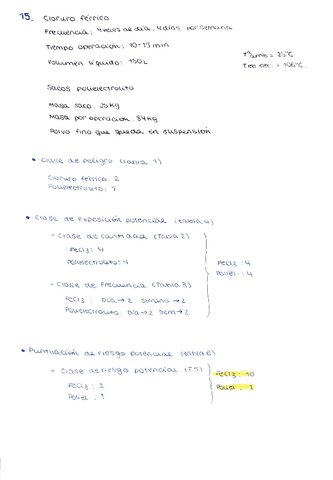 15. Cloruro férrico
Frecuencia: 4 veces al día, 4 días por semana
Tiempo operación: 10-15 min
Volumen líquido: 150L
Tª amb = 25ºC
Teb = 106ºC
Sacos polielectrolito
Masa saco: 25kg
Masa por operación: 84kg
Polvo fino que queda en suspensión
• Clase de peligro (tabla 1)
Cloruro férrico: 2
Polielectrolito: 1
• Clase de exposición potencial (tabla 4)
- Clase de cantidad (Tabla 2)
FeCl3: 4
Polielectrolito: 4
- Clase de frecuencia (Tabla 3)
FeCl3: Día → 2 Semana → 2
Polielectrolito: Día → 2 Sem → 2
FeCl3: 4
Poliel.: 4
• Puntuación de riesgo potencial (tabla 6)
- Clase de riesgo potencial (T5)
FeCl3: 2
Poliel.: 1
FeCl3: 10
Poliel.: 1